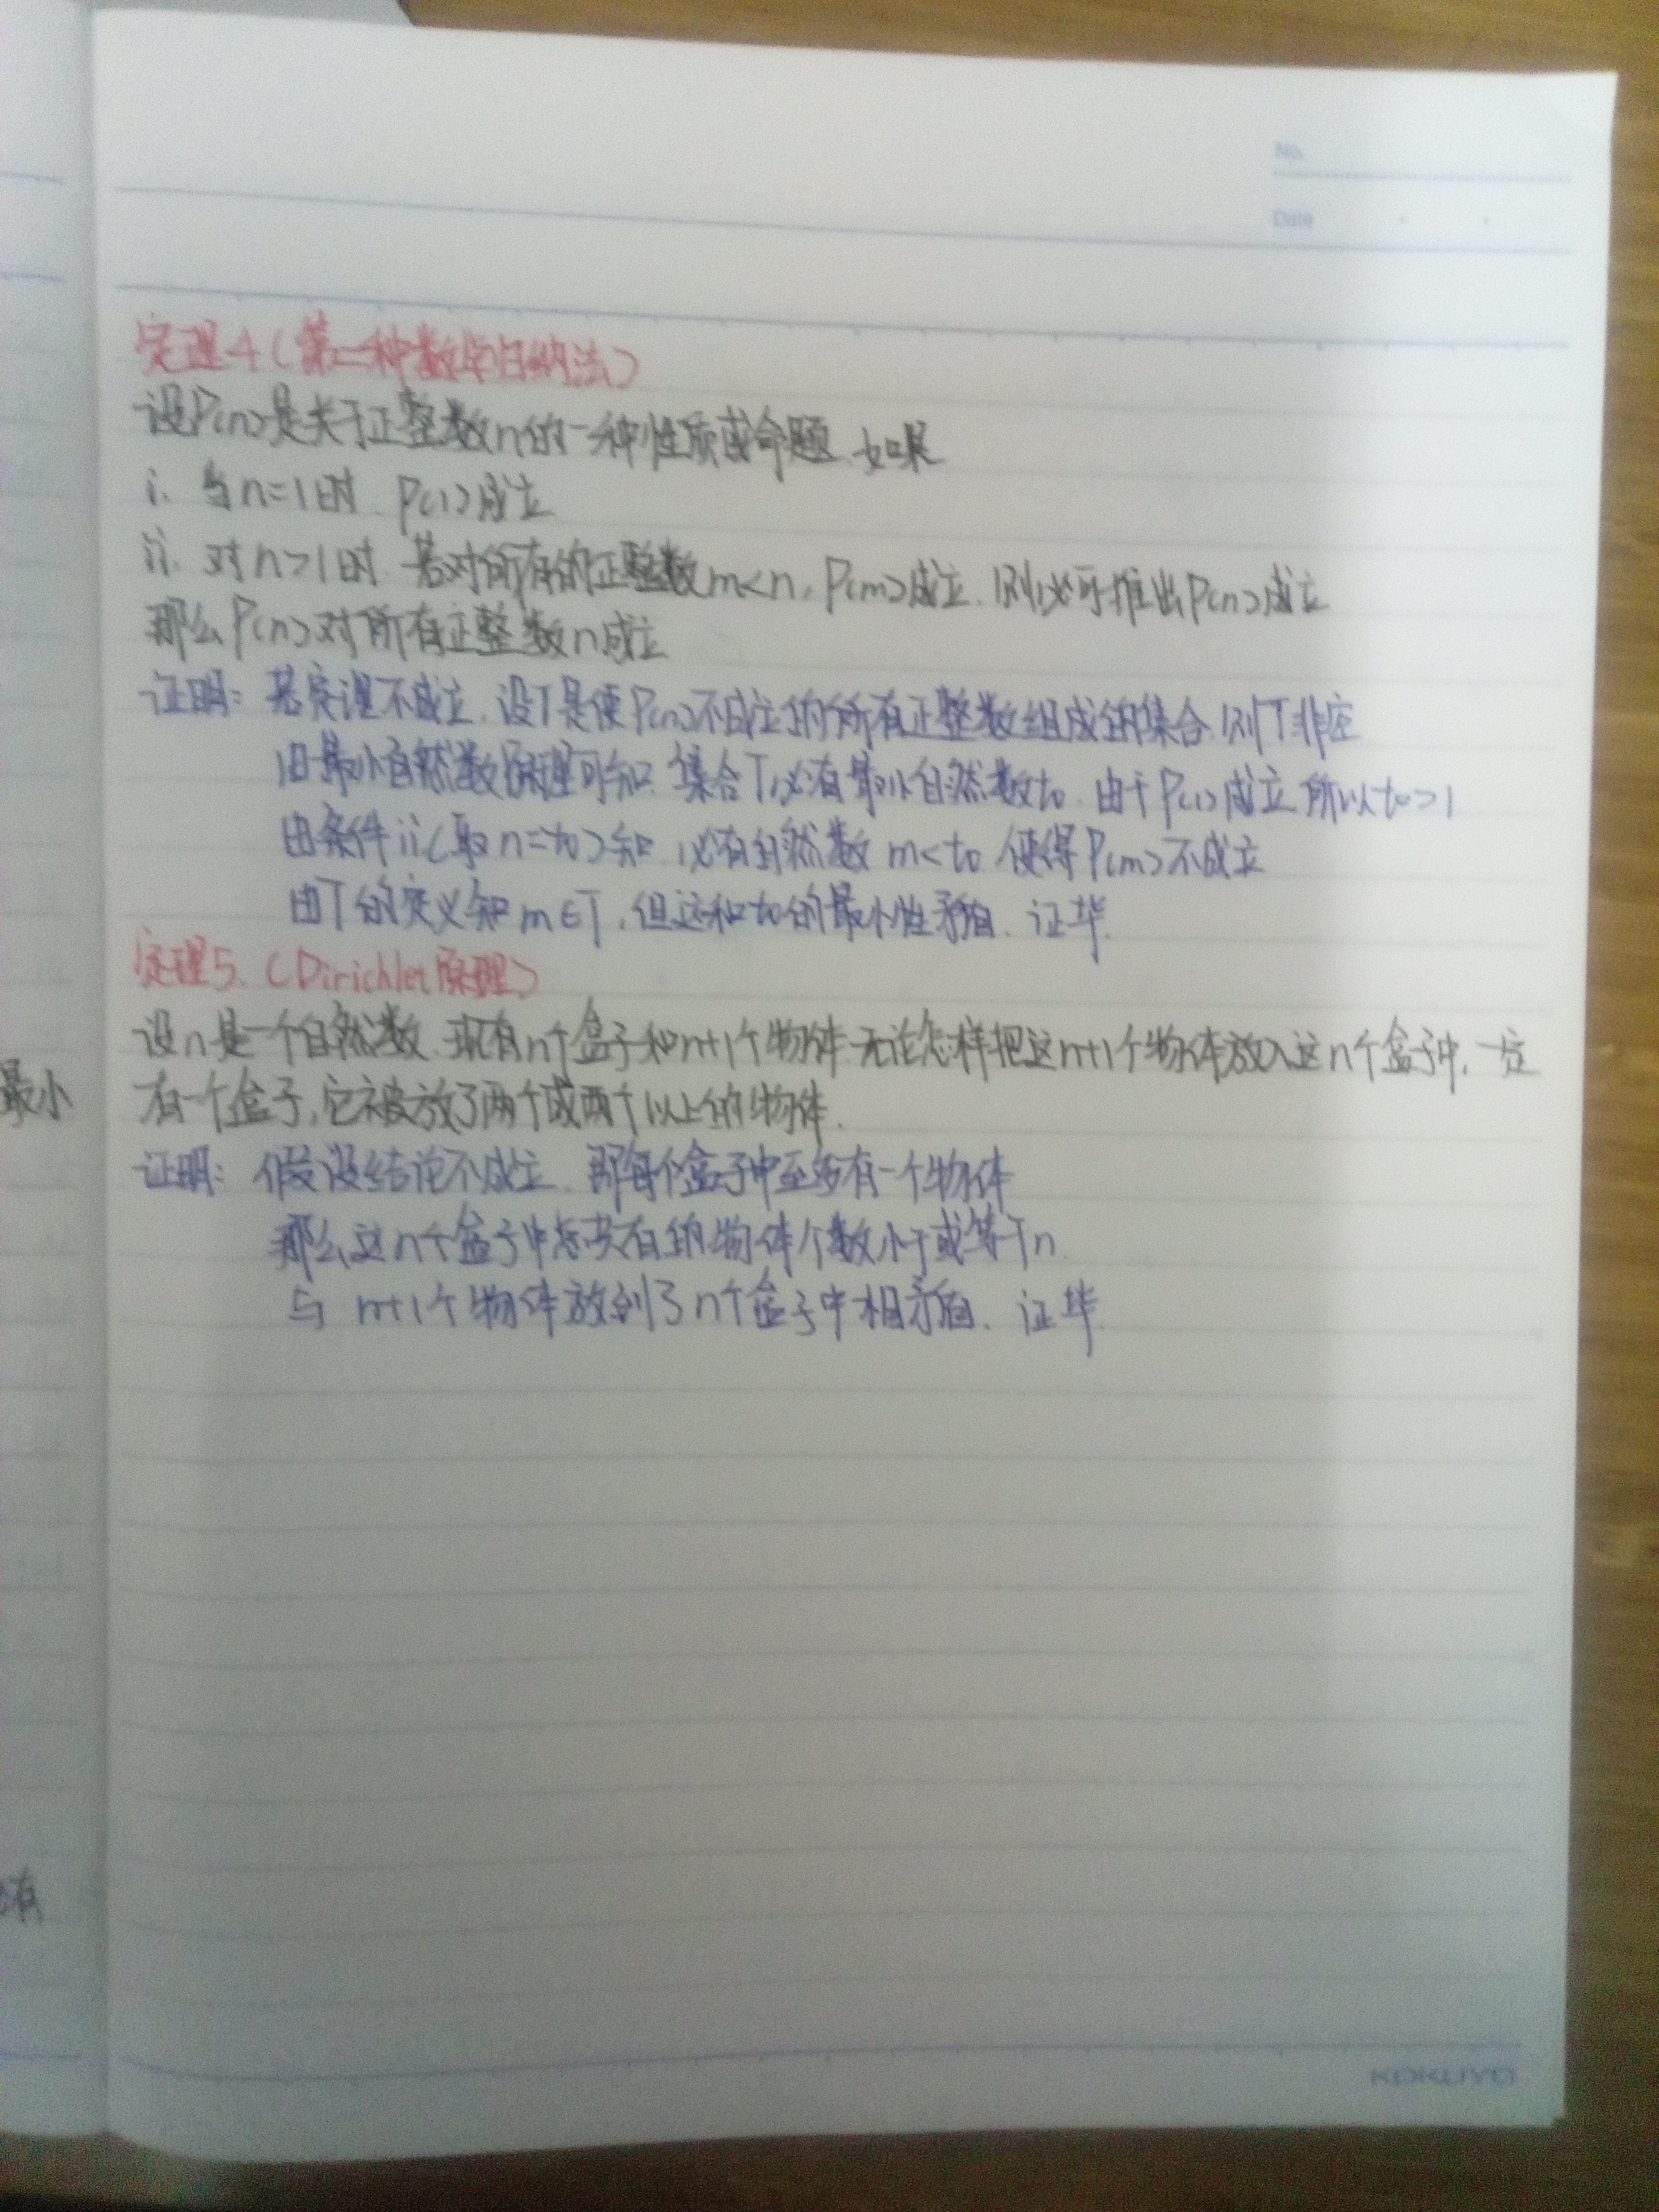 No.
Date
定理4（第二种数学归纳法）
设P(n)是关于正整数n的一种性质或命题.如果
i. 当n=1时.P(1)成立
ii. 对n>1时.若对所有的正整数m<n,P(m)成立.则必可推出P(n)成立
那么P(n)对所有正整数n成立
证明：若定理不成立.设T是使P(n)不成立的所有正整数组成的集合.则T非空
由最小自然数原理可知.集合T必有最小自然数t₀.由于P(1)成立.所以t₀>1
由条件ii(取n=t₀)知.必有自然数m<t₀.使得P(m)不成立
由T的定义知m∈T,但这和t₀的最小性矛盾.证毕.
定理5.（Dirichlet原理）
设n是一个自然数.现有n个盒子和n+1个物体.无论怎样把这n+1个物体放入这n个盒子中,一定
最小
有一个盒子,它被放了两个或两个以上的物体.
证明：假设结论不成立.那每个盒子中至多有一个物体
那么这n个盒子中总共有的物体个数小于或等于n.
与n+1个物体放到了n个盒子中相矛盾.证毕.
有
KOKUYO